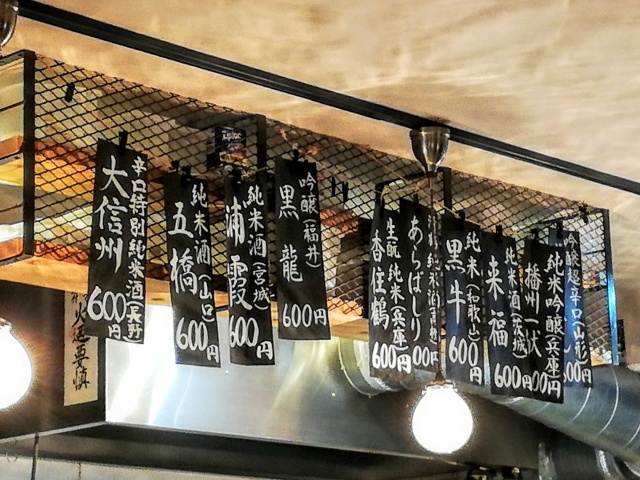 辛口特別純米酒(長野)
大信州
600円
純米酒(山口)
五橋
600円
純米酒(宮城)
浦霞
600円
吟醸(福井)
黒龍
600円
生酛純米(兵庫)
香住鶴
600円
あらばしり
00円
純米(和歌山)
黒牛
600円
純米酒(茨城)
来福
600円
純米吟醸(兵庫)
播州一献
00円
吟醸超辛口(山形)
00円
火迺要慎